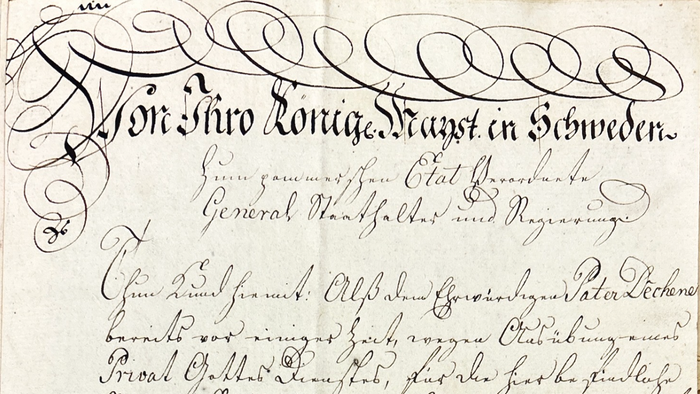 Von Ihro Königl. Mayst. in Schweden
Zum pommerschen Etat Verordnete
General Staathalter und Regierung.
Thun Kund hiemit: Alß dem Ehrwürdigen Pater Dechene
bereits vor einiger Zeit, wegen Ausübung eines
Privat Gottes Dienstes, für die hier befindliche